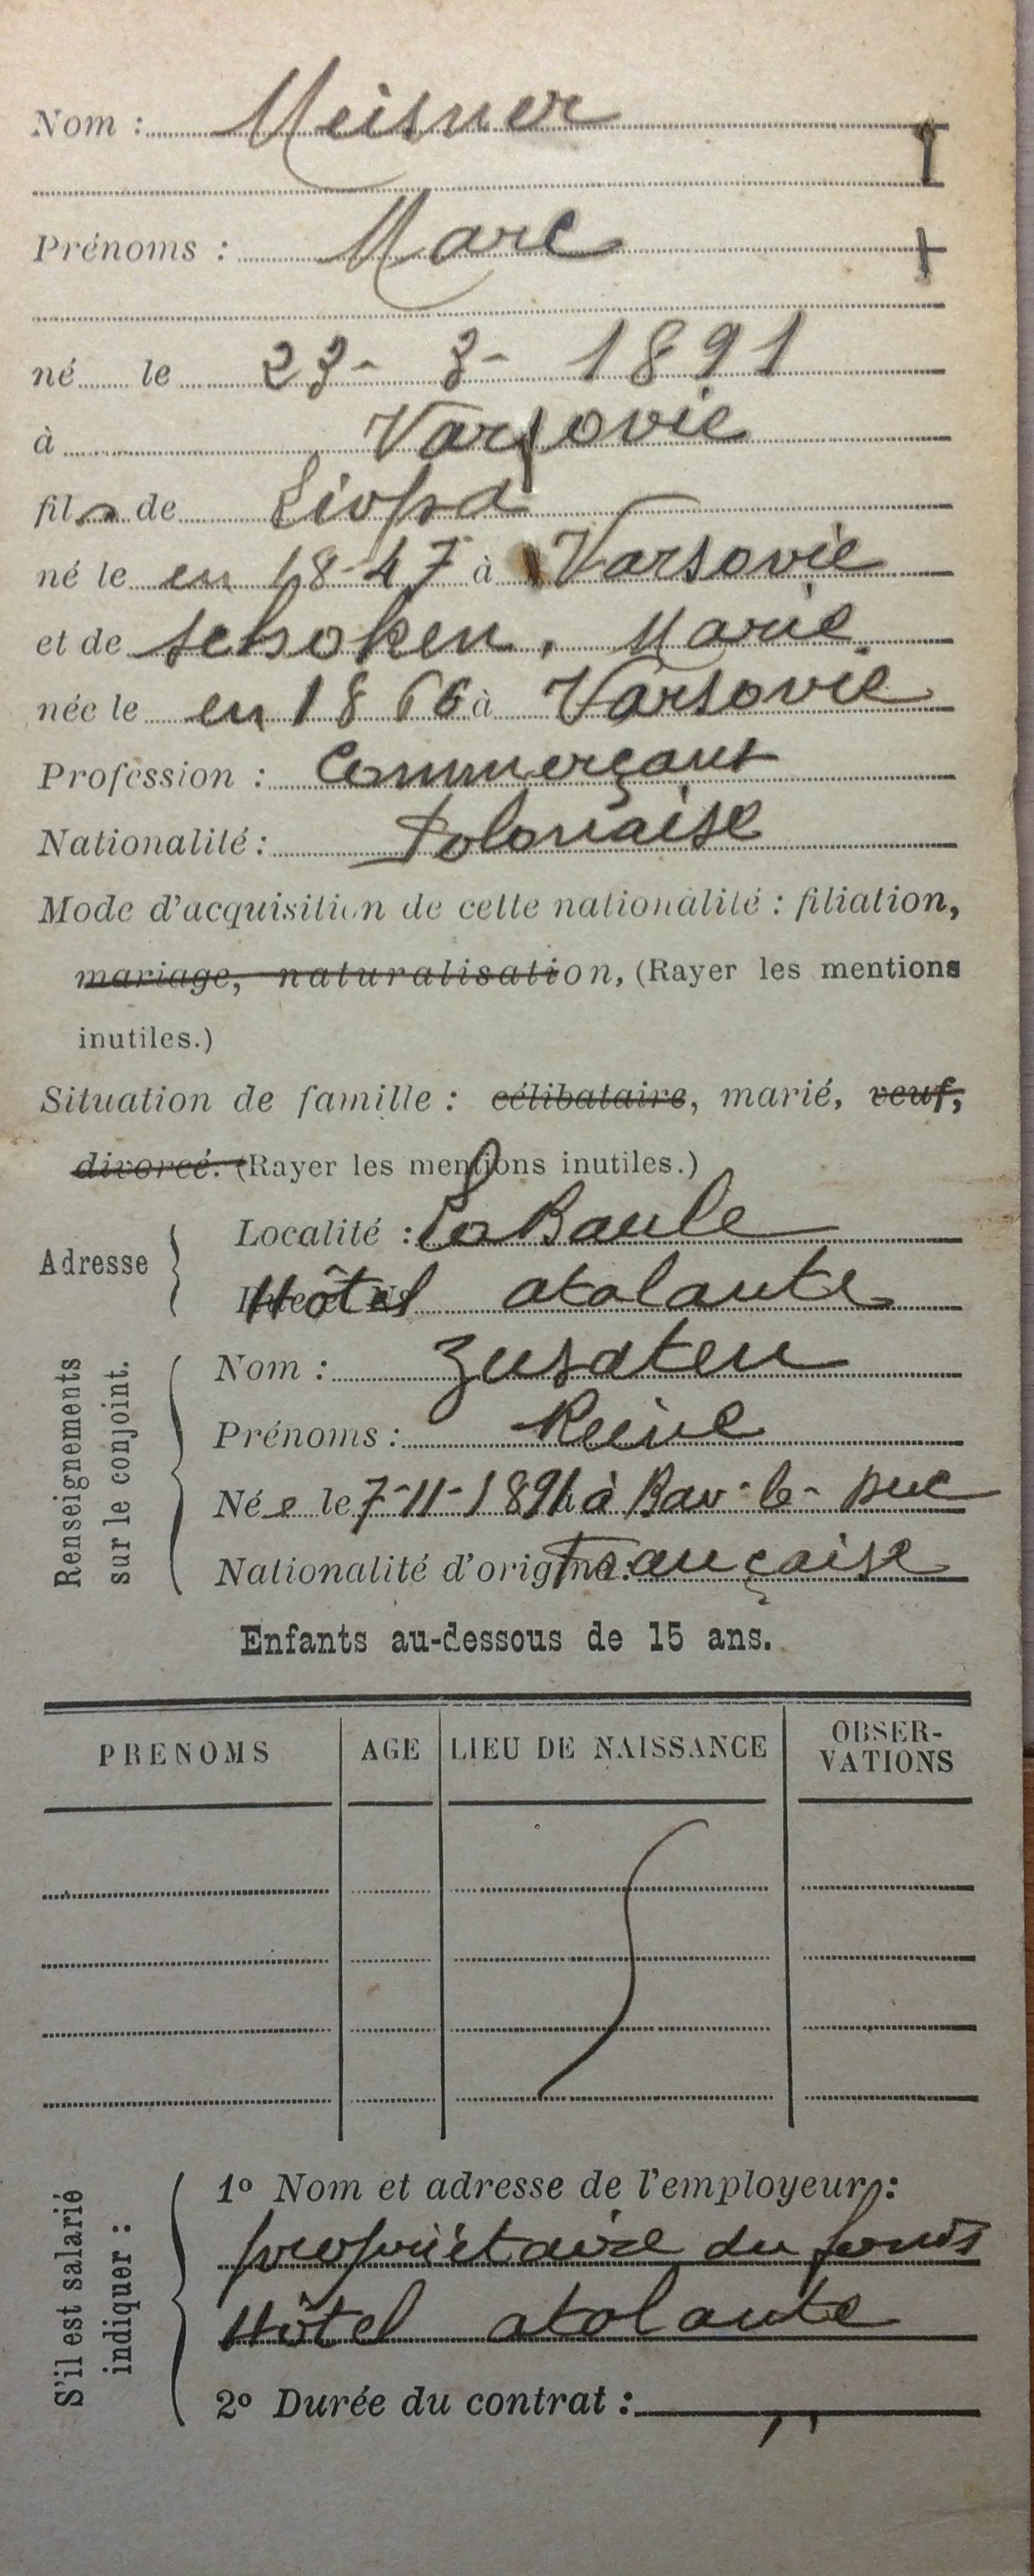 Nom : Meisner
Prénoms : Marc
né le 23 - 3 - 1891
à Varsovie
fils de Liopa
né le en 1847 à Varsovie
et de Schoken, Marie
née le en 1866 à Varsovie
Profession : Commerçant
Nationalité : Polonaise
Mode d'acquisition de cette nationalité : filiation,
mariage, naturalisation, (Rayer les mentions
inutiles.)
Situation de famille : célibataire, marié, veuf,
divorcé. (Rayer les mentions inutiles.)
Adresse
Localité : La Baule
Hôtel atalante
Renseignements
sur le conjoint.
Nom : Zusaten
Prénoms : Reine
Née le 7-11-1891 à Bar-le-Duc
Nationalité d'origine : Française
Enfants au-dessous de 15 ans.
PRENOMS AGE LIEU DE NAISSANCE OBSER-
VATIONS
S'il est salarié
indiquer :
1º Nom et adresse de l'employeur :
propriétaire du fonds
Hôtel atalante
2º Durée du contrat :